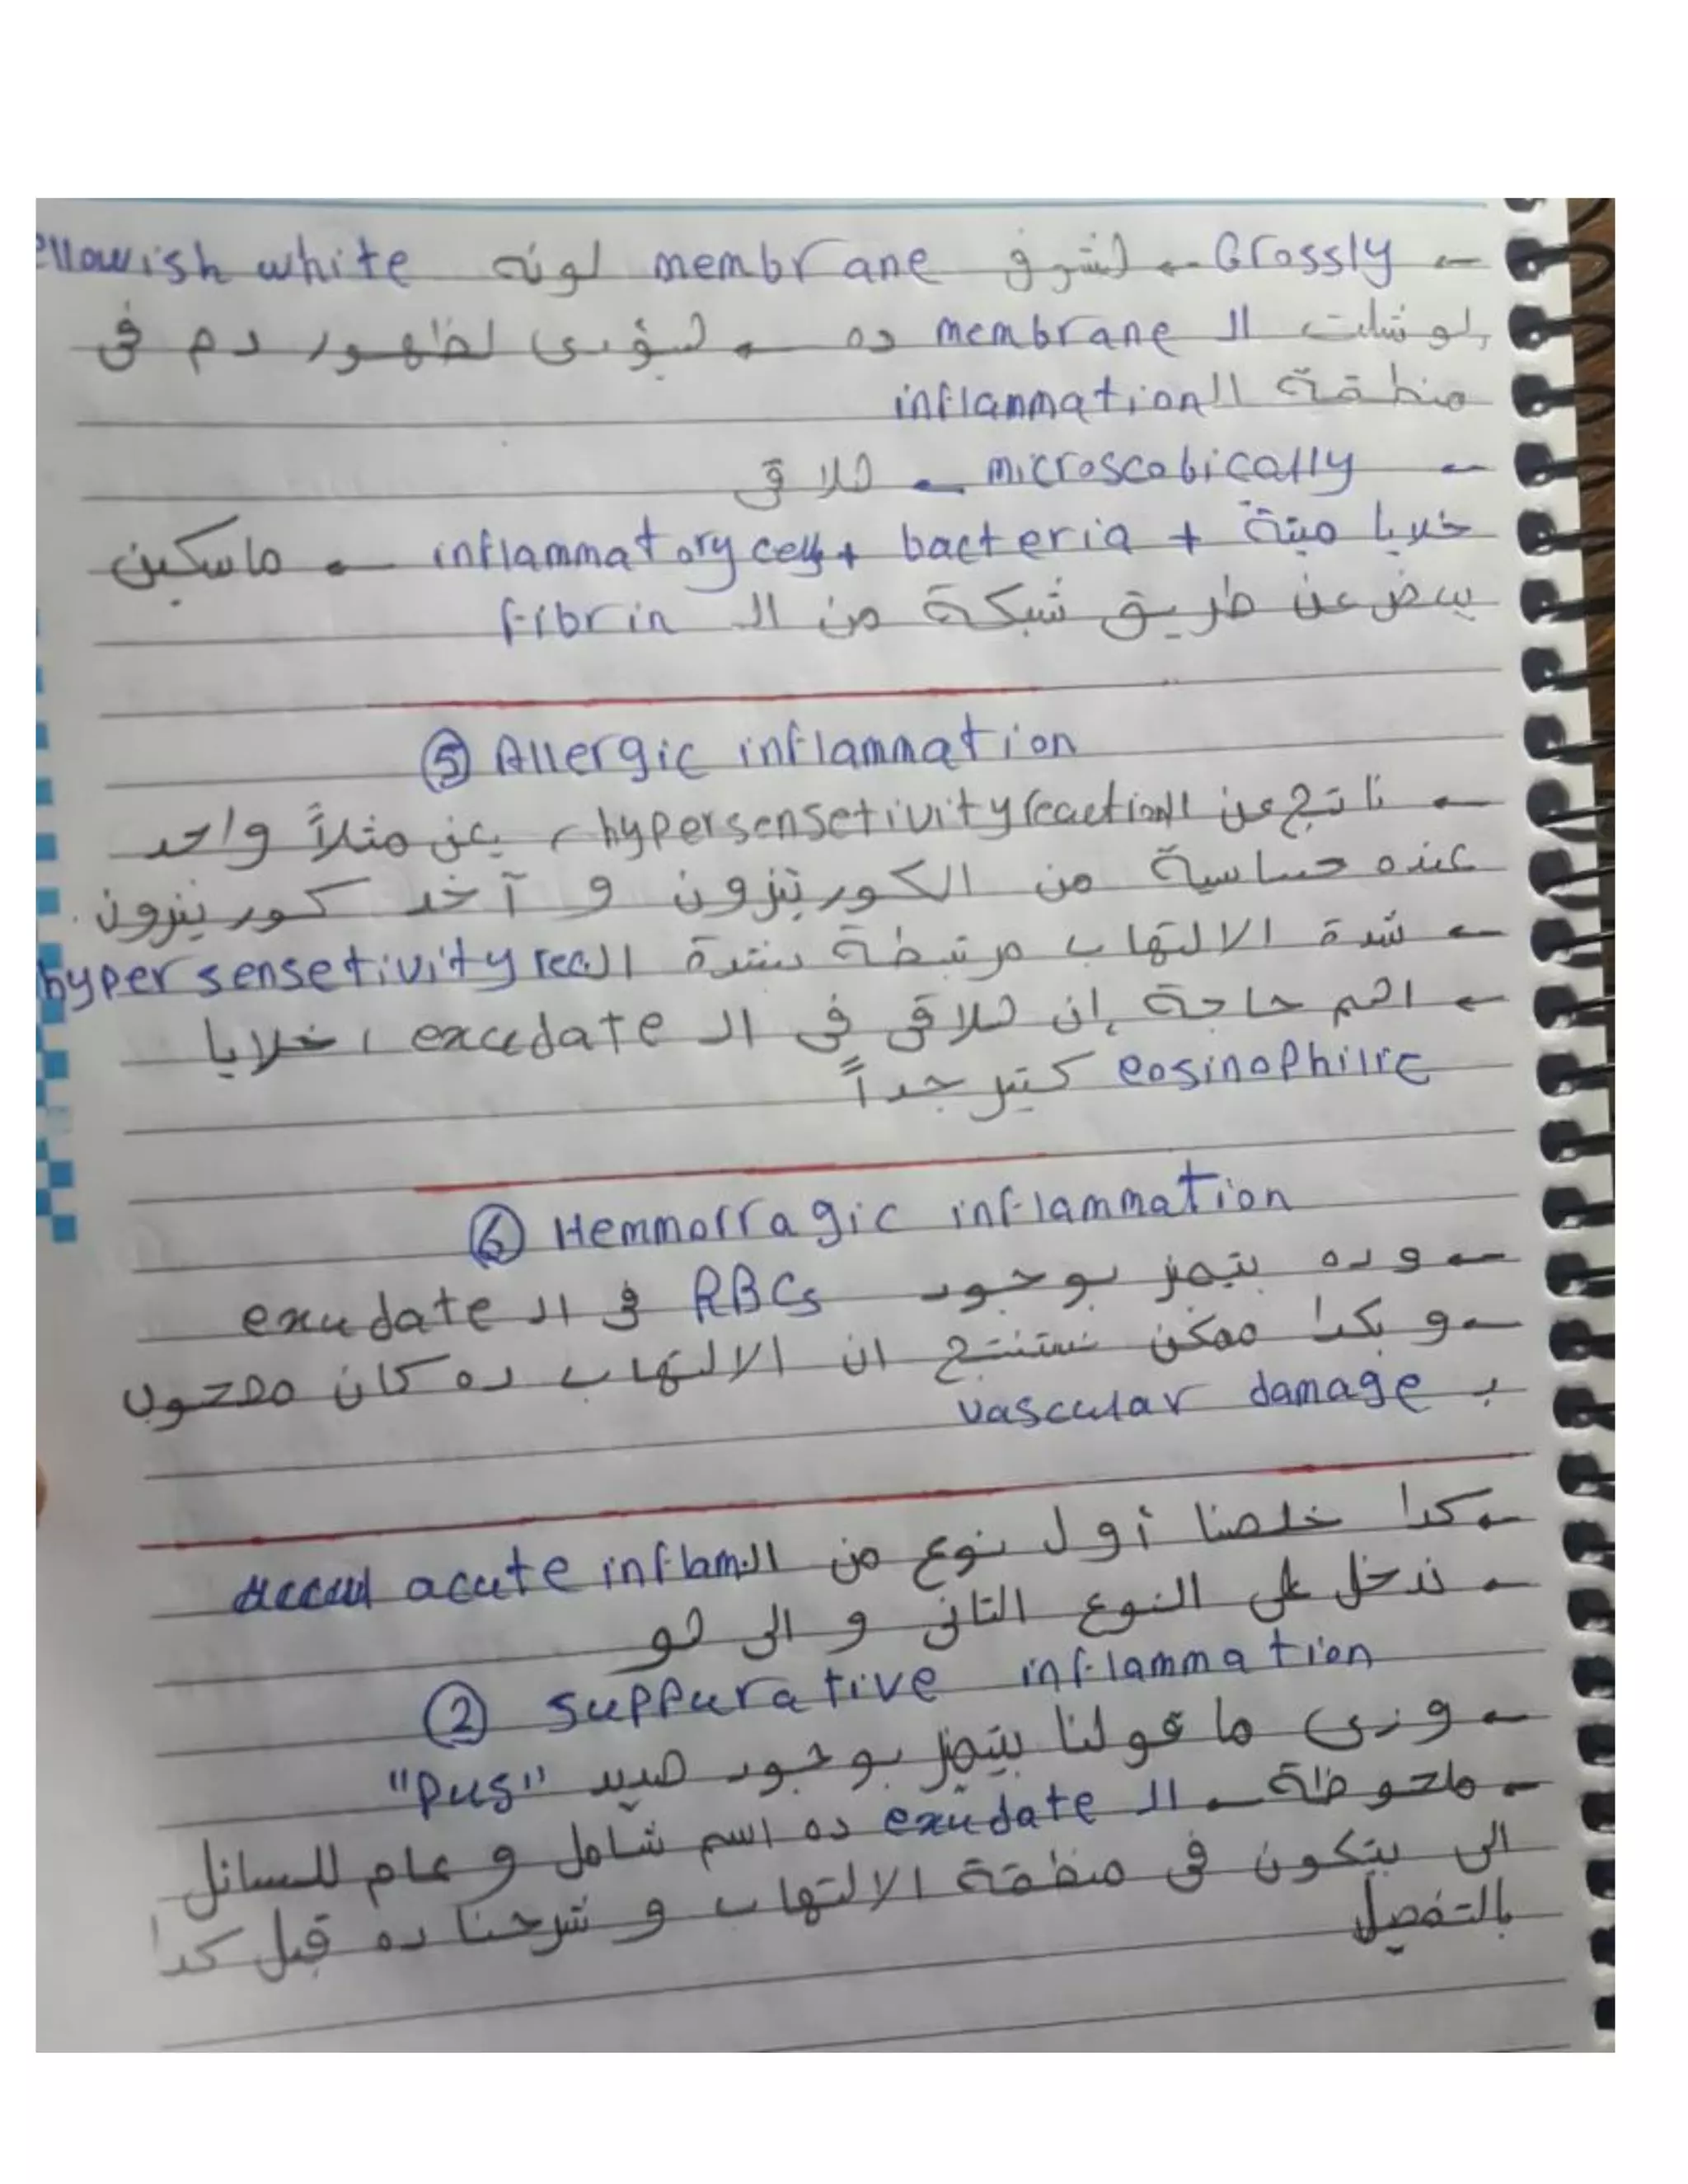 ← Grossly ← هتشوف membrane لونه ellowish white
لو شلت الـ membrane ده ← هيؤدى لظهور دم فى
منطقة الـ inflammation
← microscobically ← هلاقى
خلايا ميتة + bacteria + inflammatory cells ← ماسكين
بعض عن طريق شبكة من الـ fibrin
⑤ Allergic inflammation
← ناتج عن الـ hypersensetivity reaction ، يعنى مثلاً واحد
عنده حساسية من الكورتيزون و آخد كورتيزون.
← شدة الالتهاب مرتبطة بشدة الـ hyper sensetivity rec.
← اهم حاجة إن هلاقى فى الـ exudate ، خلايا
eosinophilic كتير جداً
⑥ Hemmorragic inflammation
← وده بتيميز بوجود RBCs فى الـ exudate
← و بكدا ممكن نستنتج ان الالتهاب ده كان مصحوب
بـ vascular damage
← كدا خلصنا أول نوع من الـ acute inflam.
← ندخل على النوع التانى و الى هو
② suppurative inflammation
← وزى ما قولنا بيتميز بوجود صديد "Pus"
← ملحوظة ← الـ exudate ده اسم شامل و عام للسائل
الى بيتكون فى منطقة الالتهاب و شرحنا ده قبل كدا
بالتفصيل